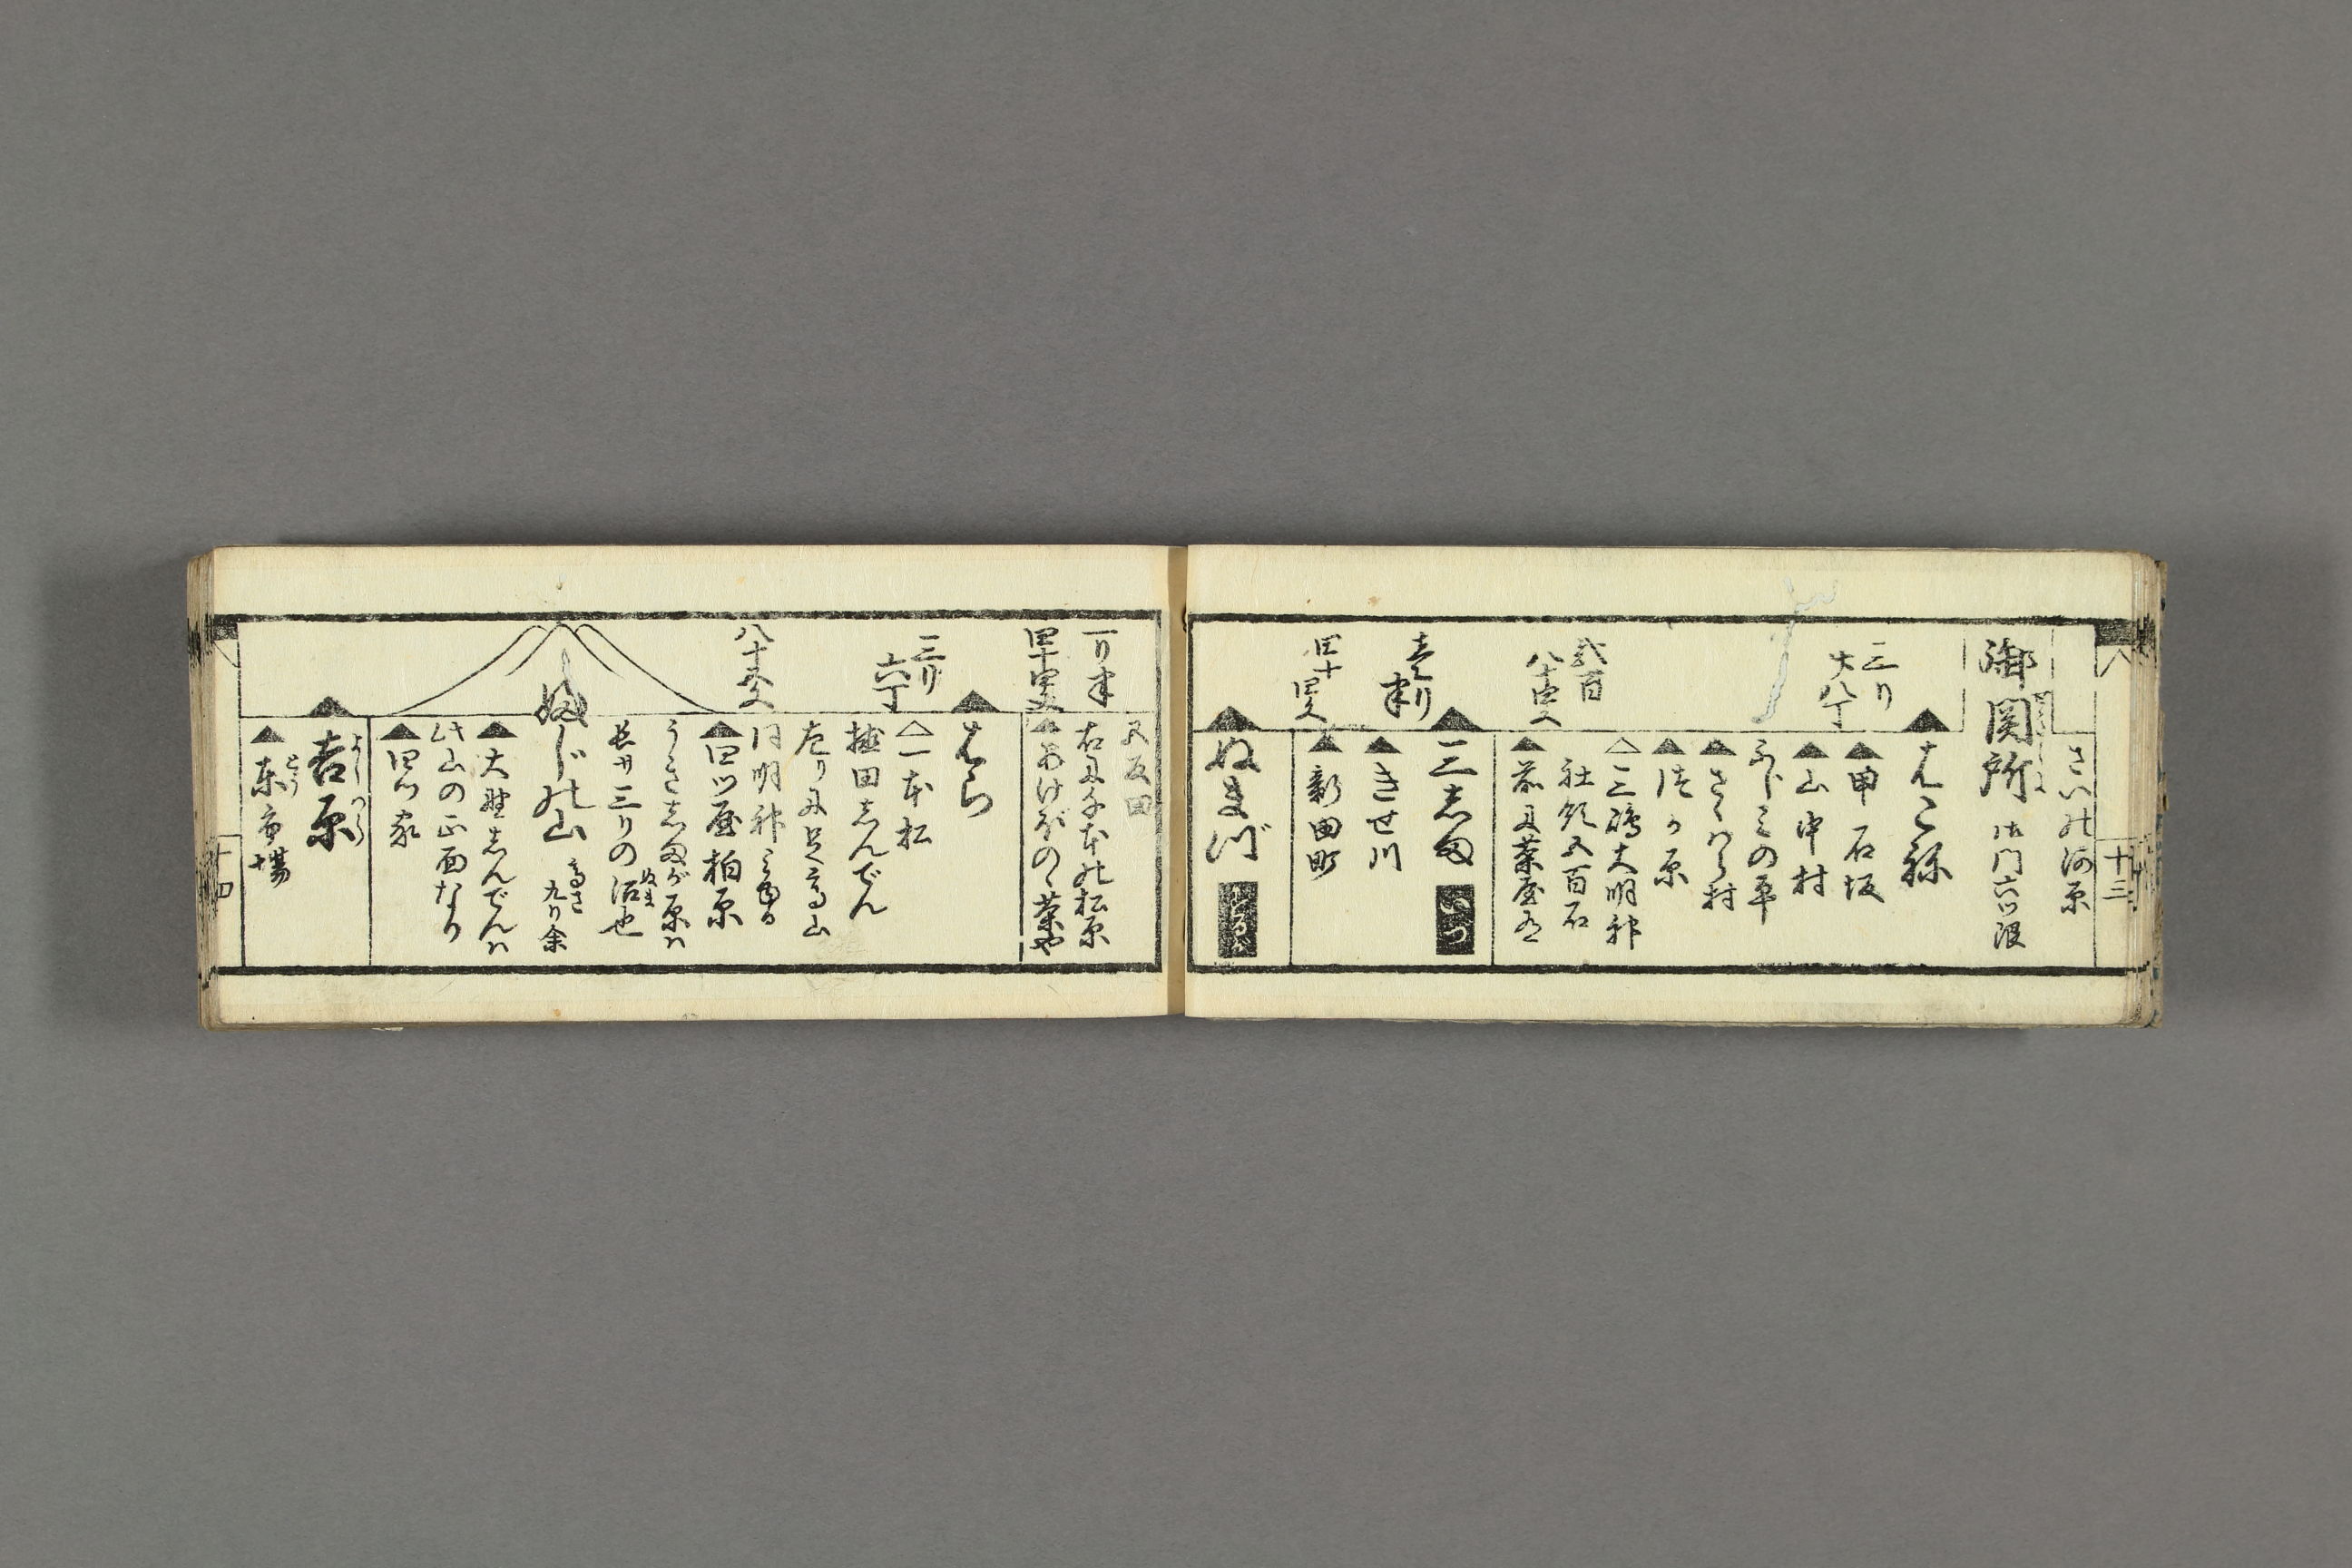 八
十三
さいの河原
御関所
御門六ツ限
はこ祢
三リ
廿八丁
甲石坂
山中村
ふじミの平
さゝはら村
三嶋大明神
社領五百石
弐百
八十四文
前に茶屋有
三しま
壱リ
半
きせ川
新田町
四十
四文
ぬまづ
五反田
一リ半
右に千本の松原
四十四文
あけぼの茶や
はら
三リ
六丁
一本松
植田しんでん
左りに足高山
同明神
八十五文
四ツ屋柏原
うきしまが原ハ
長サ三リの沼也
ぬま
ふじの山
高さ
九リ余
大野しんでんハ
此山の正面なり
四ツ家
吉原
よしハら
東市場
十四